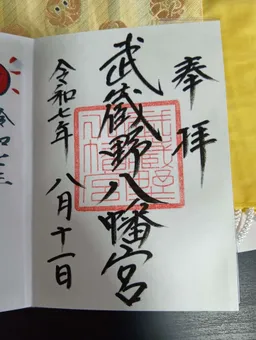 奉拝
武蔵野八幡宮
令和七年 八月十一日
令和七年